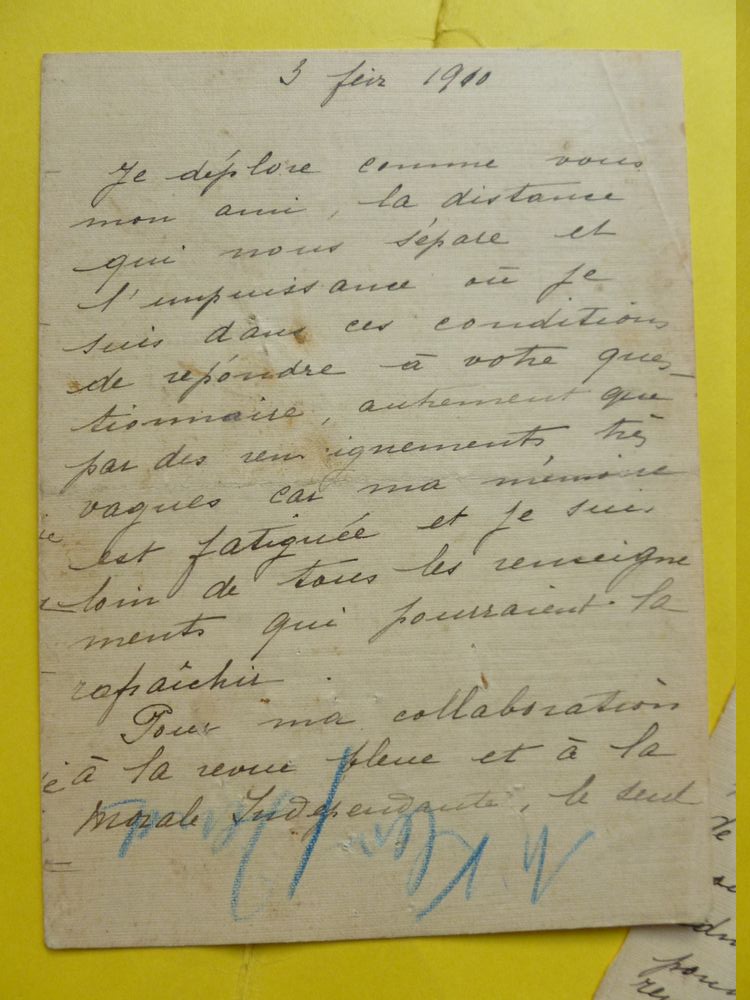 3 fév 1910
Je déplore comme vous
mon ami, la distance
qui nous sépare et
l'impuissance où je
suis dans ces conditions
de repondre à votre ques-
tionnaire, autrement que
par des renseignements très
vagues car ma mémoire
est fatiguée et je suis
loin de tous les renseigne
ments qui pourraient la
rafraîchir.
Pour ma collaboration
à la revue bleue et à la
Morale Indépendante, le seul